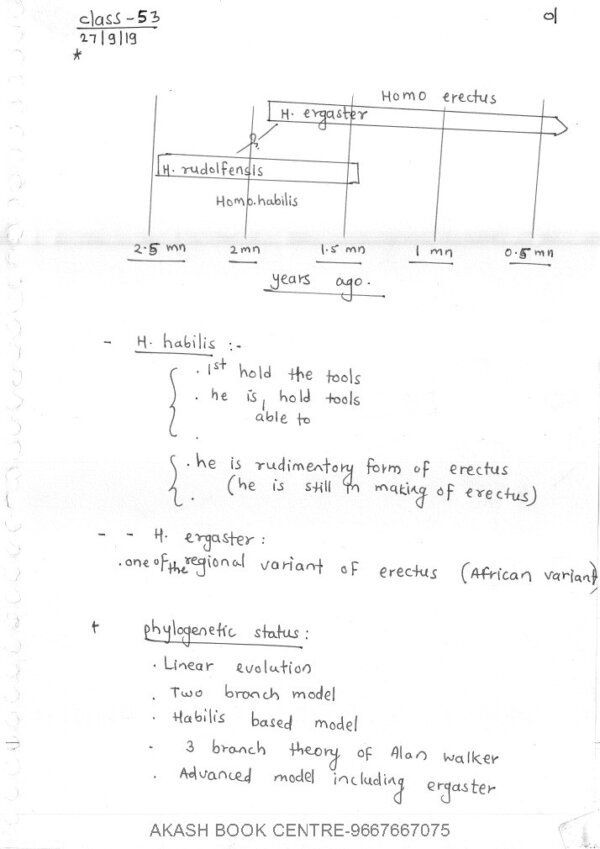 class-53
27/9/19
01
*
Homo erectus
H. ergaster
?
H. rudolfensis
Homo.habilis
2.5 mn 2mn 1.5 mn 1 mn 0.5 mn
years ago.
- H. habilis :-
. 1st hold the tools
. he is able to hold tools
.
. he is rudimentory form of erectus
(he is still in making of erectus)
.
- - H. ergaster :
. one of the regional variant of erectus (African variant)
+ phylogenetic status :
. Linear evolution
. Two branch model
. Habilis based model
. 3 branch theory of Alan walker
. Advanced model including ergaster
AKASH BOOK CENTRE-9667667075